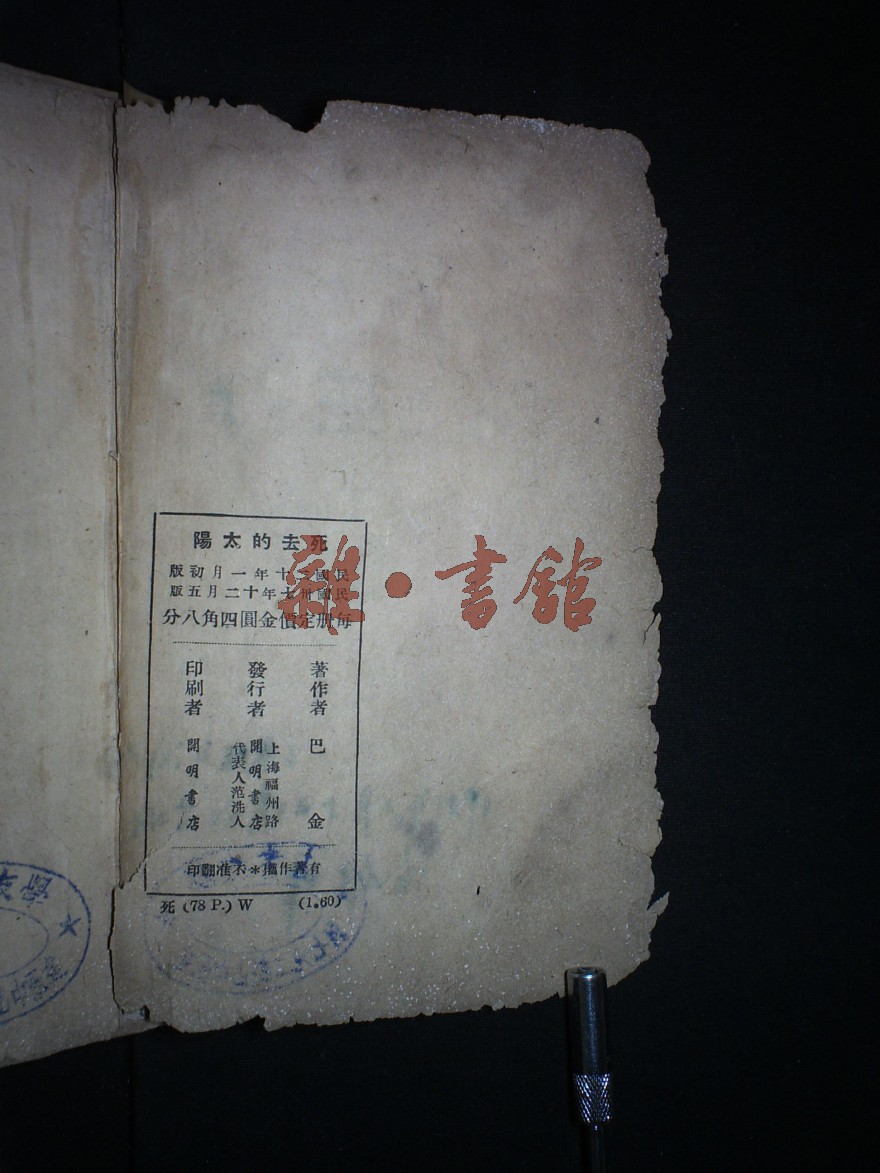 死去的太陽
民國二十年一月初版
民國卅七年十二月五版
每册定價金圓四角八分
著作者 巴金
發行者 上海福州路
開明書店
代表人范洗人
印刷者 開明書店
有著作權*不准翻印
死 (78 P.) W (1.60)
雜·書館